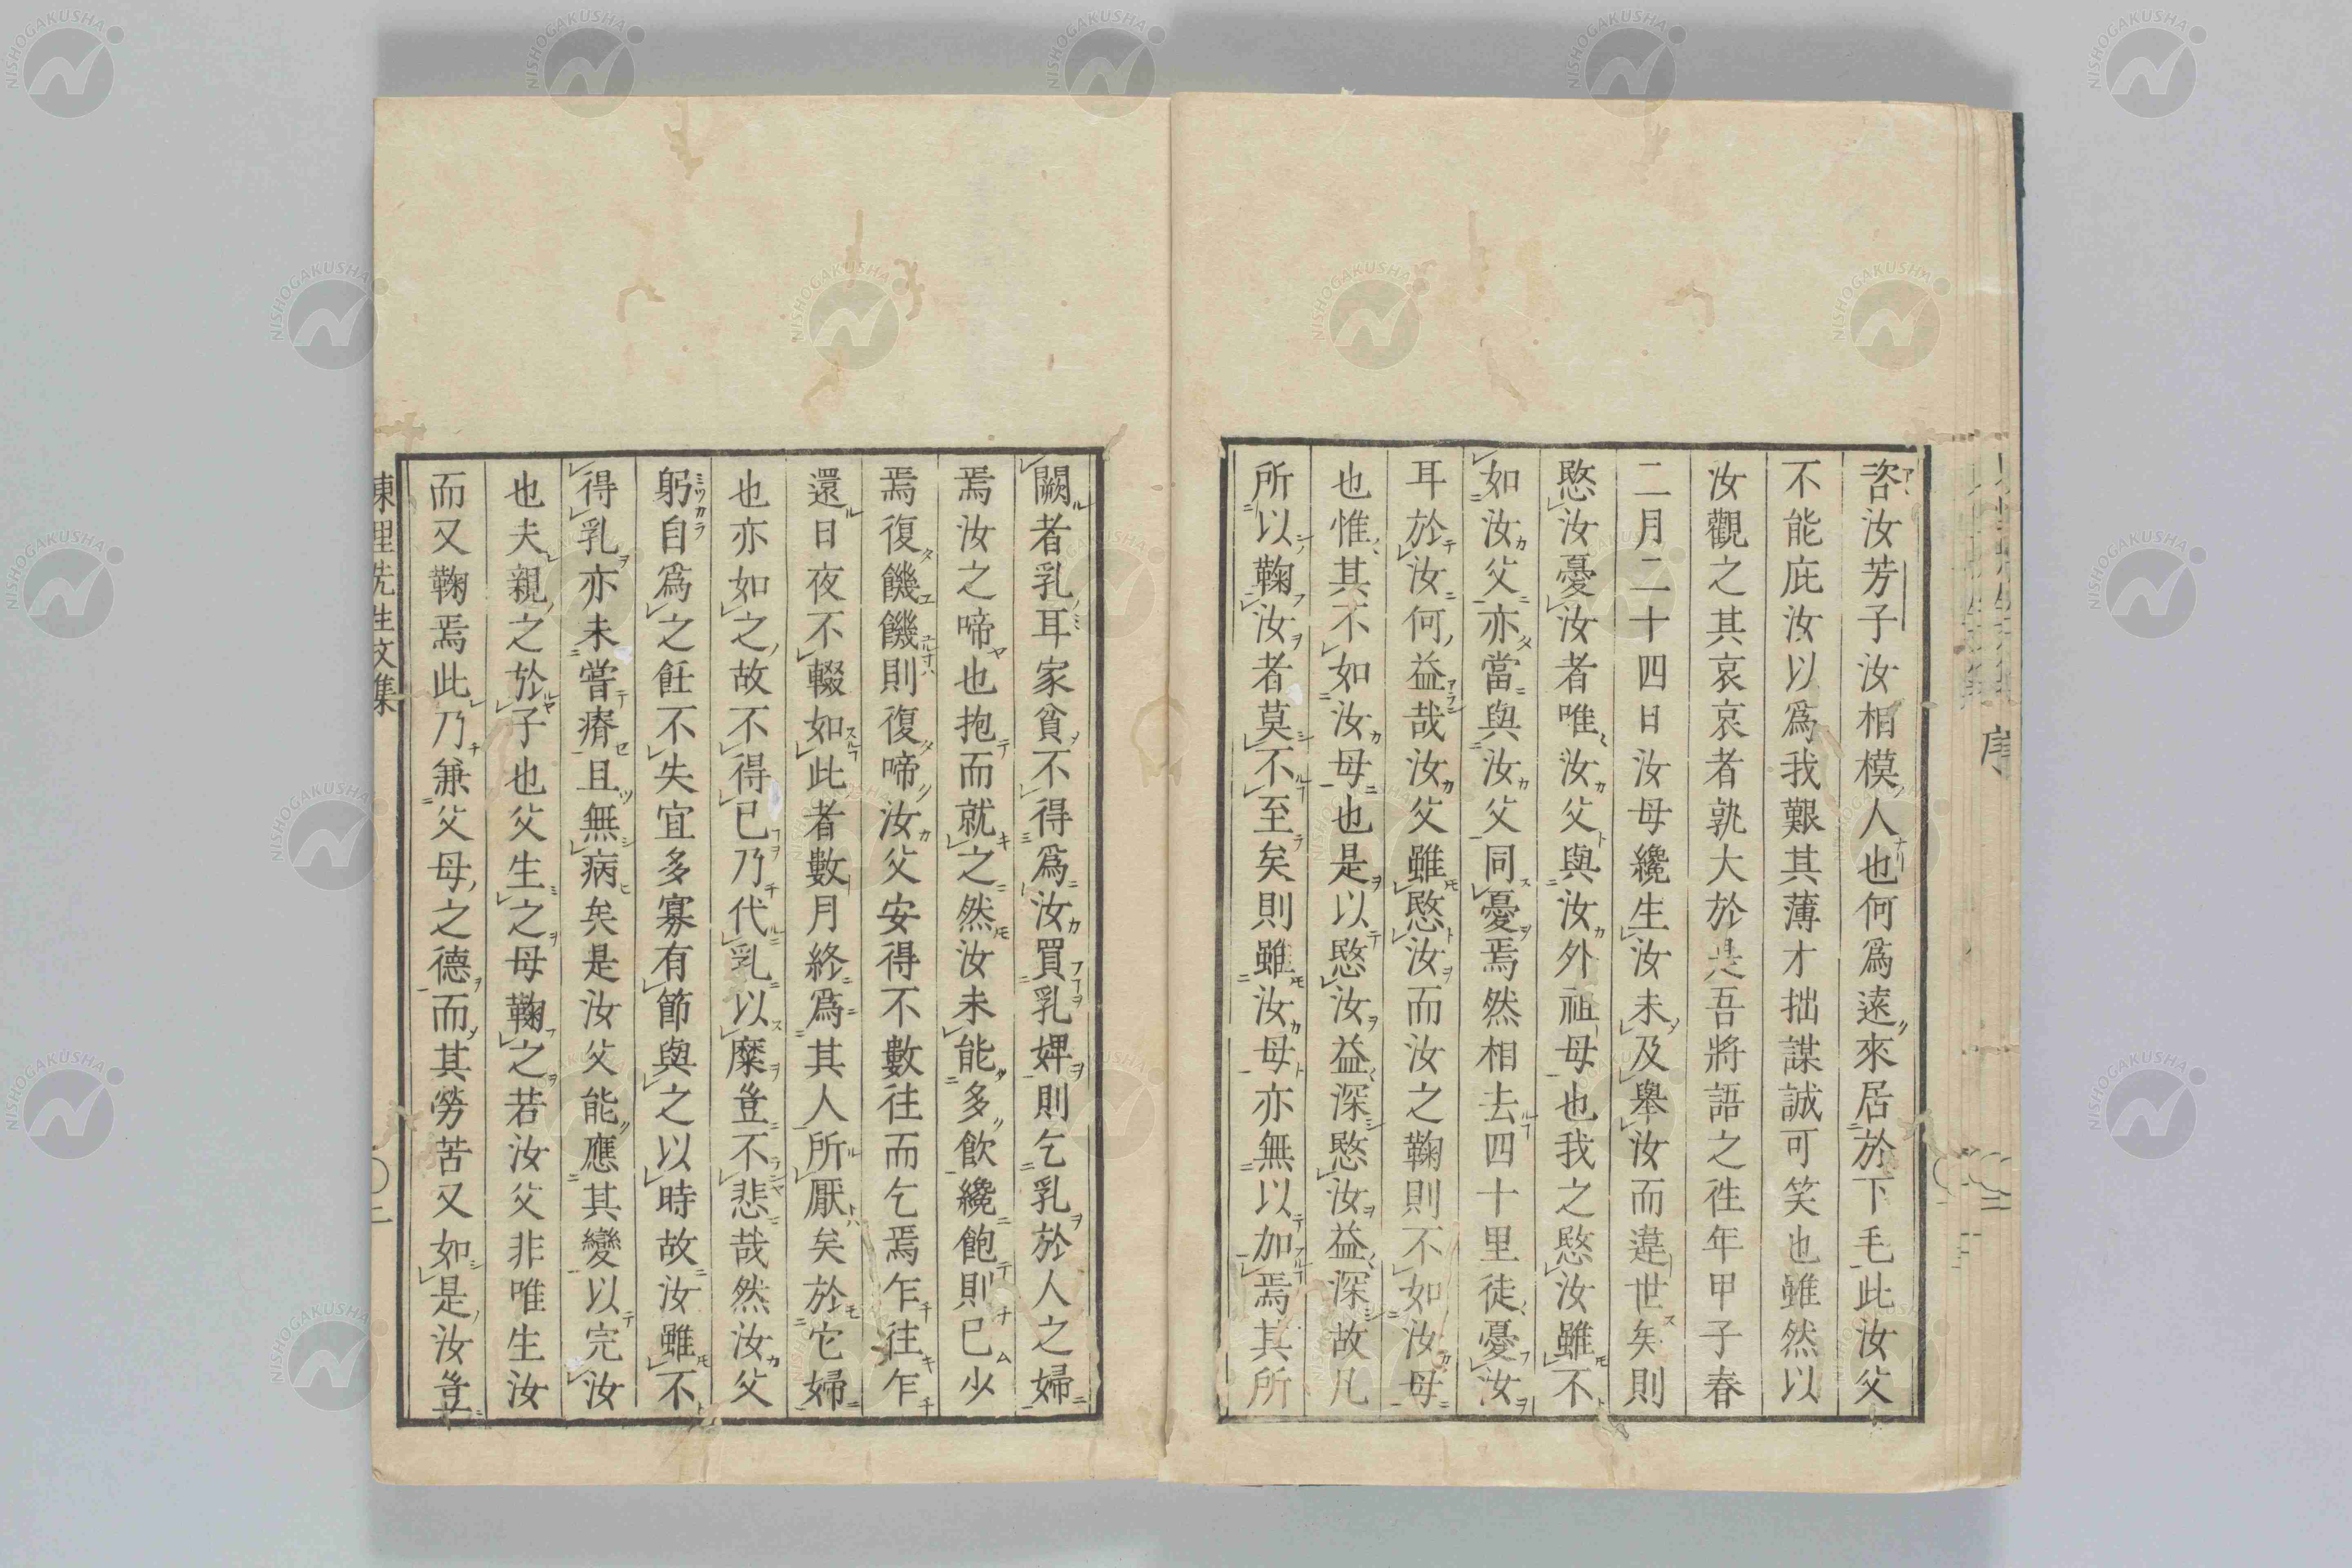 咨汝芳子汝相模人也何爲遠來居於下毛此汝父
不能庇汝以爲我艱其薄才拙謀誠可笑也雖然以
汝觀之其哀哀者孰大於是吾將語之徃年甲子春
二月二十四日汝母纔生汝未及舉汝而違世矣則
愍汝憂汝者唯汝父與汝外祖母也我之愍汝雖不
如汝父亦當與汝父同憂焉然相去四十里徒憂汝
耳於汝何益哉汝父雖愍汝而汝之鞠則不如汝母
也惟其不如汝母也是以愍汝益深愍汝益深故凡
所以鞠汝者莫不至矣則雖汝母亦無以加焉其所
闕者乳耳家貧不得爲汝買乳婢則乞乳於人之婦
焉汝之啼也抱而就之然汝未能多飲纔飽則已少
焉復饑饑則復啼汝父安得不數往而乞焉乍往乍
還日夜不輟如此者數月終爲其人所厭矣於它婦
也亦如之故不得已乃代乳以糜豈不悲哉然汝父
躬自爲之飪不失宜多寡有節與之以時故汝雖不
得乳亦未嘗瘠且無病矣是汝父能應其變以完汝
也夫親之於子也父生之母鞠之若汝父非唯生汝
而又鞠焉此乃兼父母之德而其勞苦又如是汝豈
東里先生文集
二
序
NISHOGAKUSHA